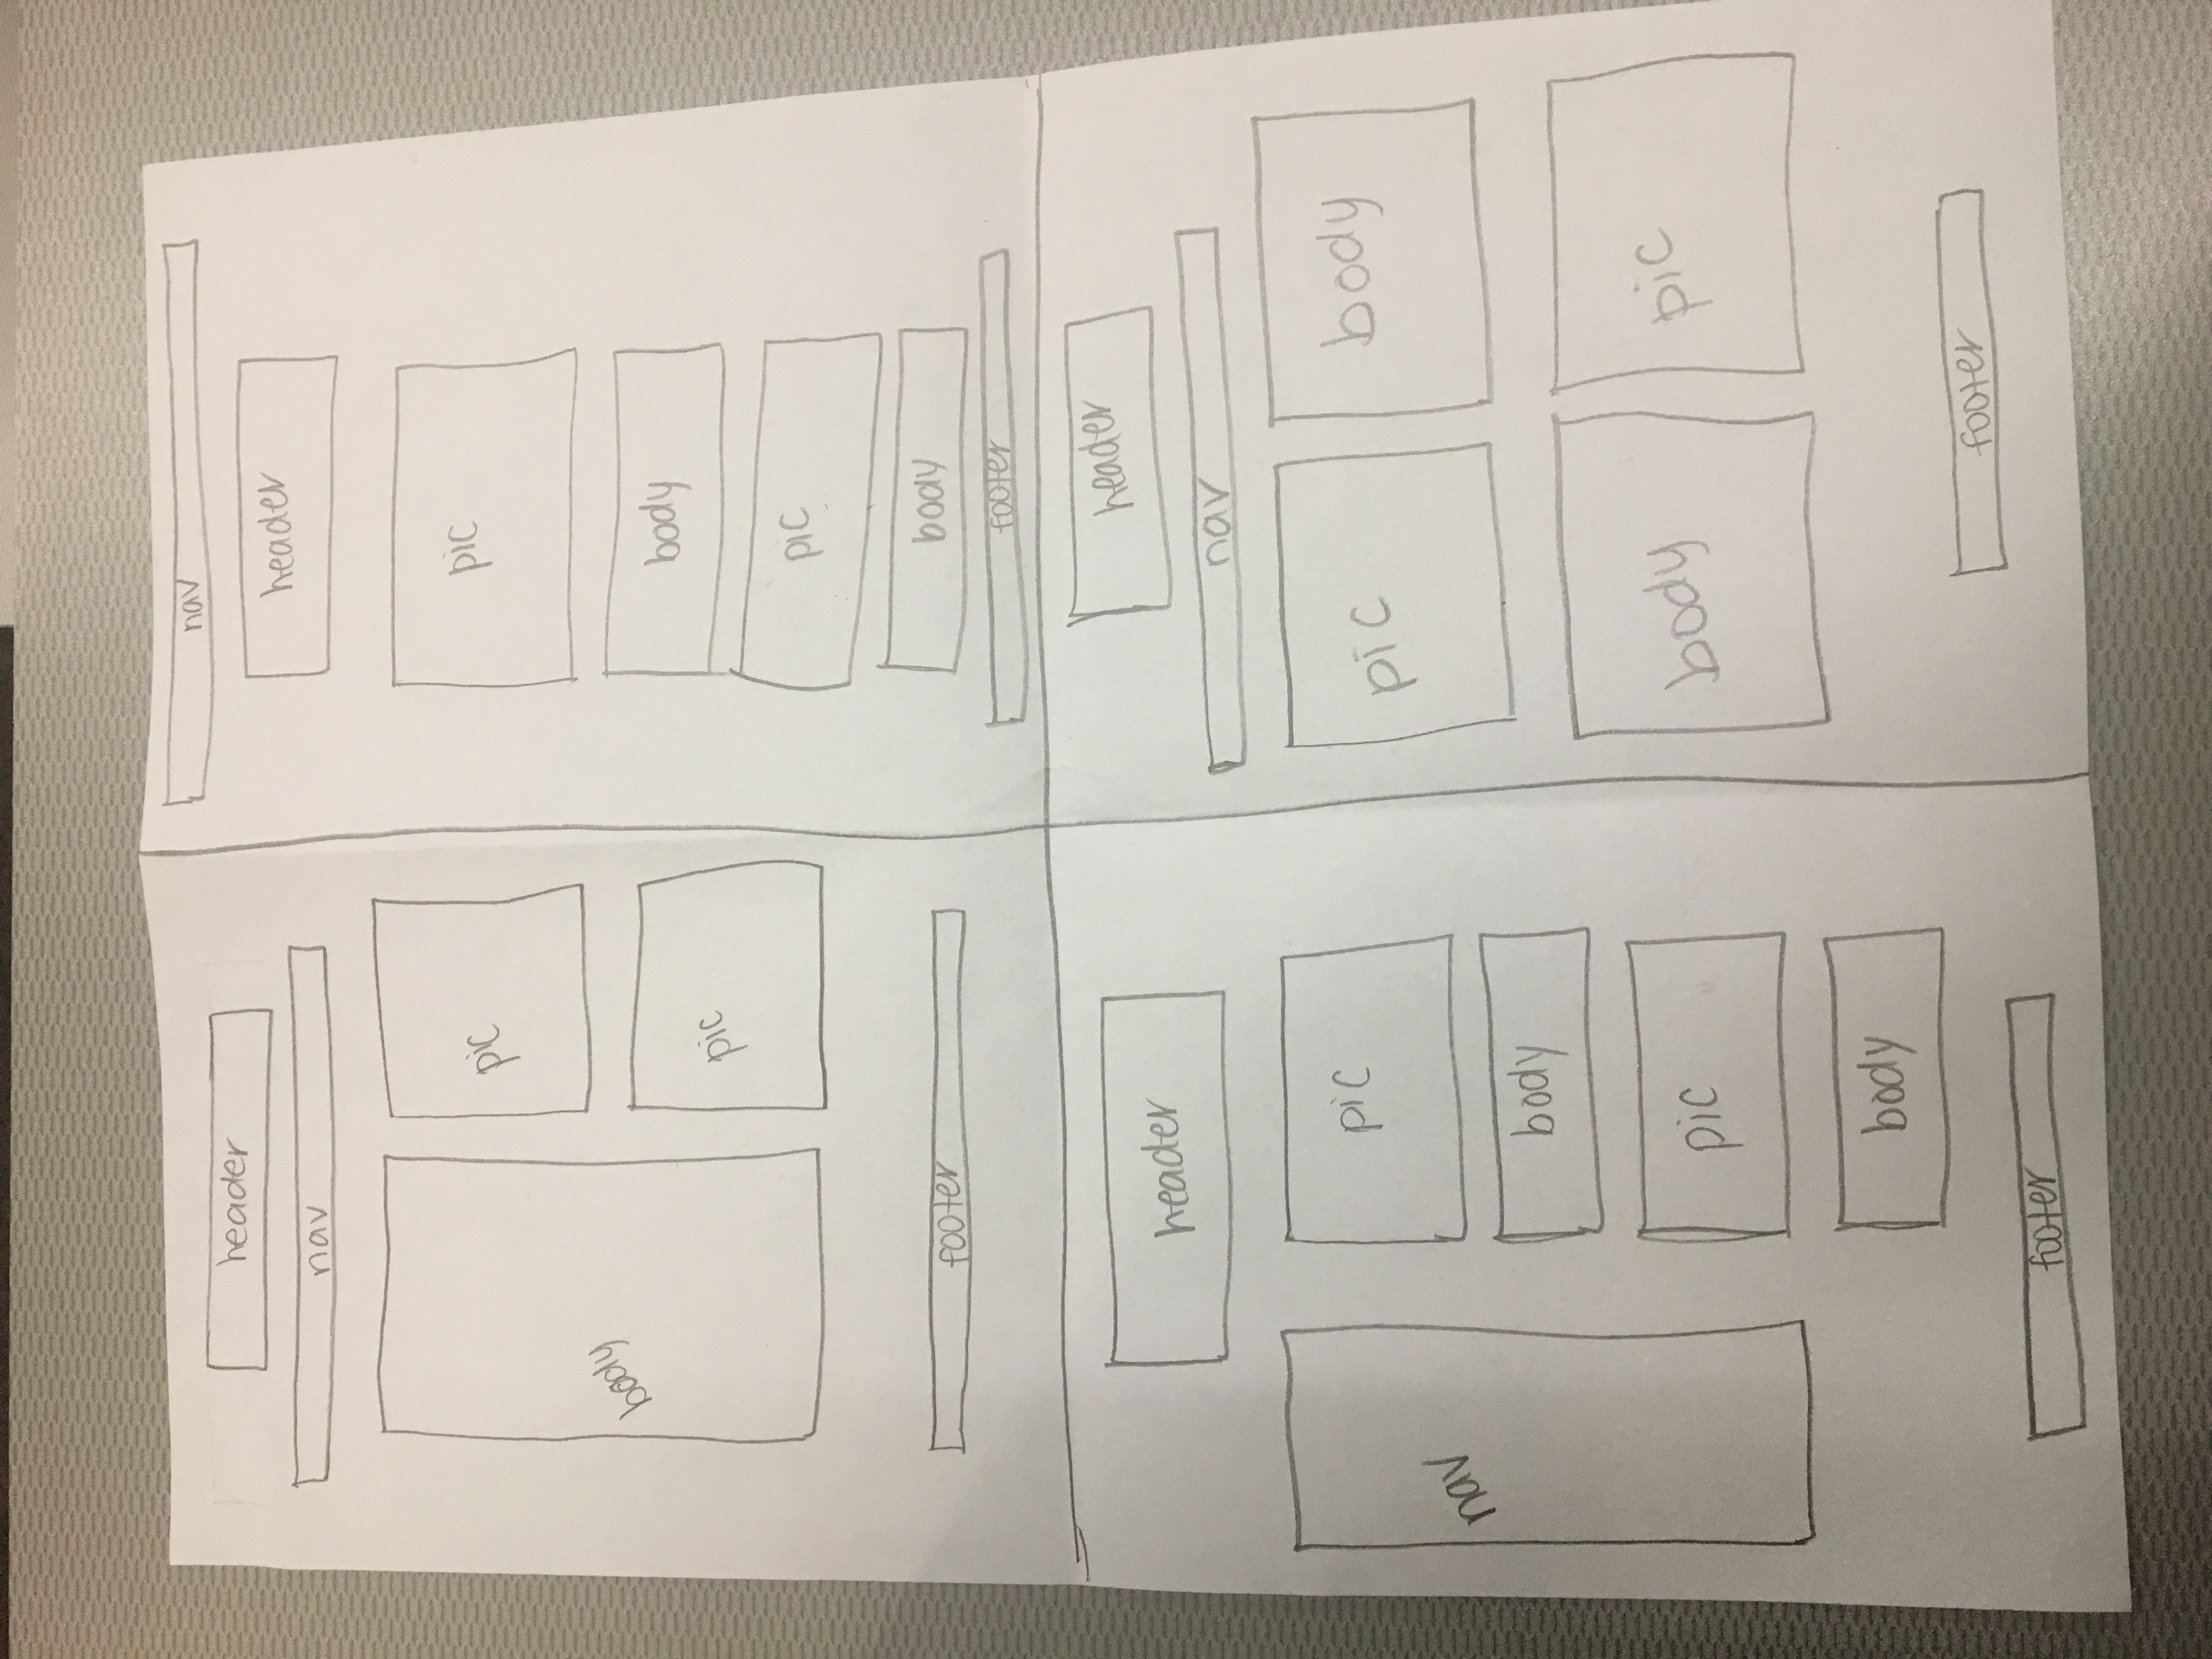 header
nav
body
pic
pic
footer
nav
header
pic
body
pic
body
footer
header
nav
pic
body
pic
body
footer
header
nav
pic
body
body
pic
footer